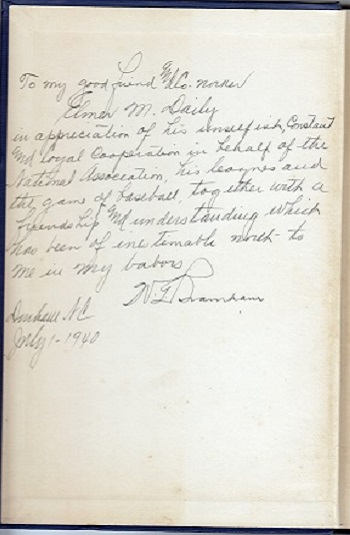 To my good friend and Co-worker
Elmer M. Daily
in appreciation of his unselfish, Constant
and loyal Cooperation in behalf of the
National Association, his leagues and
the game of baseball, together with a
friendship and understanding which
has been of inestemable worth to
me in my labors
W.G. Bramham
Durham N.C.
July 1-1940